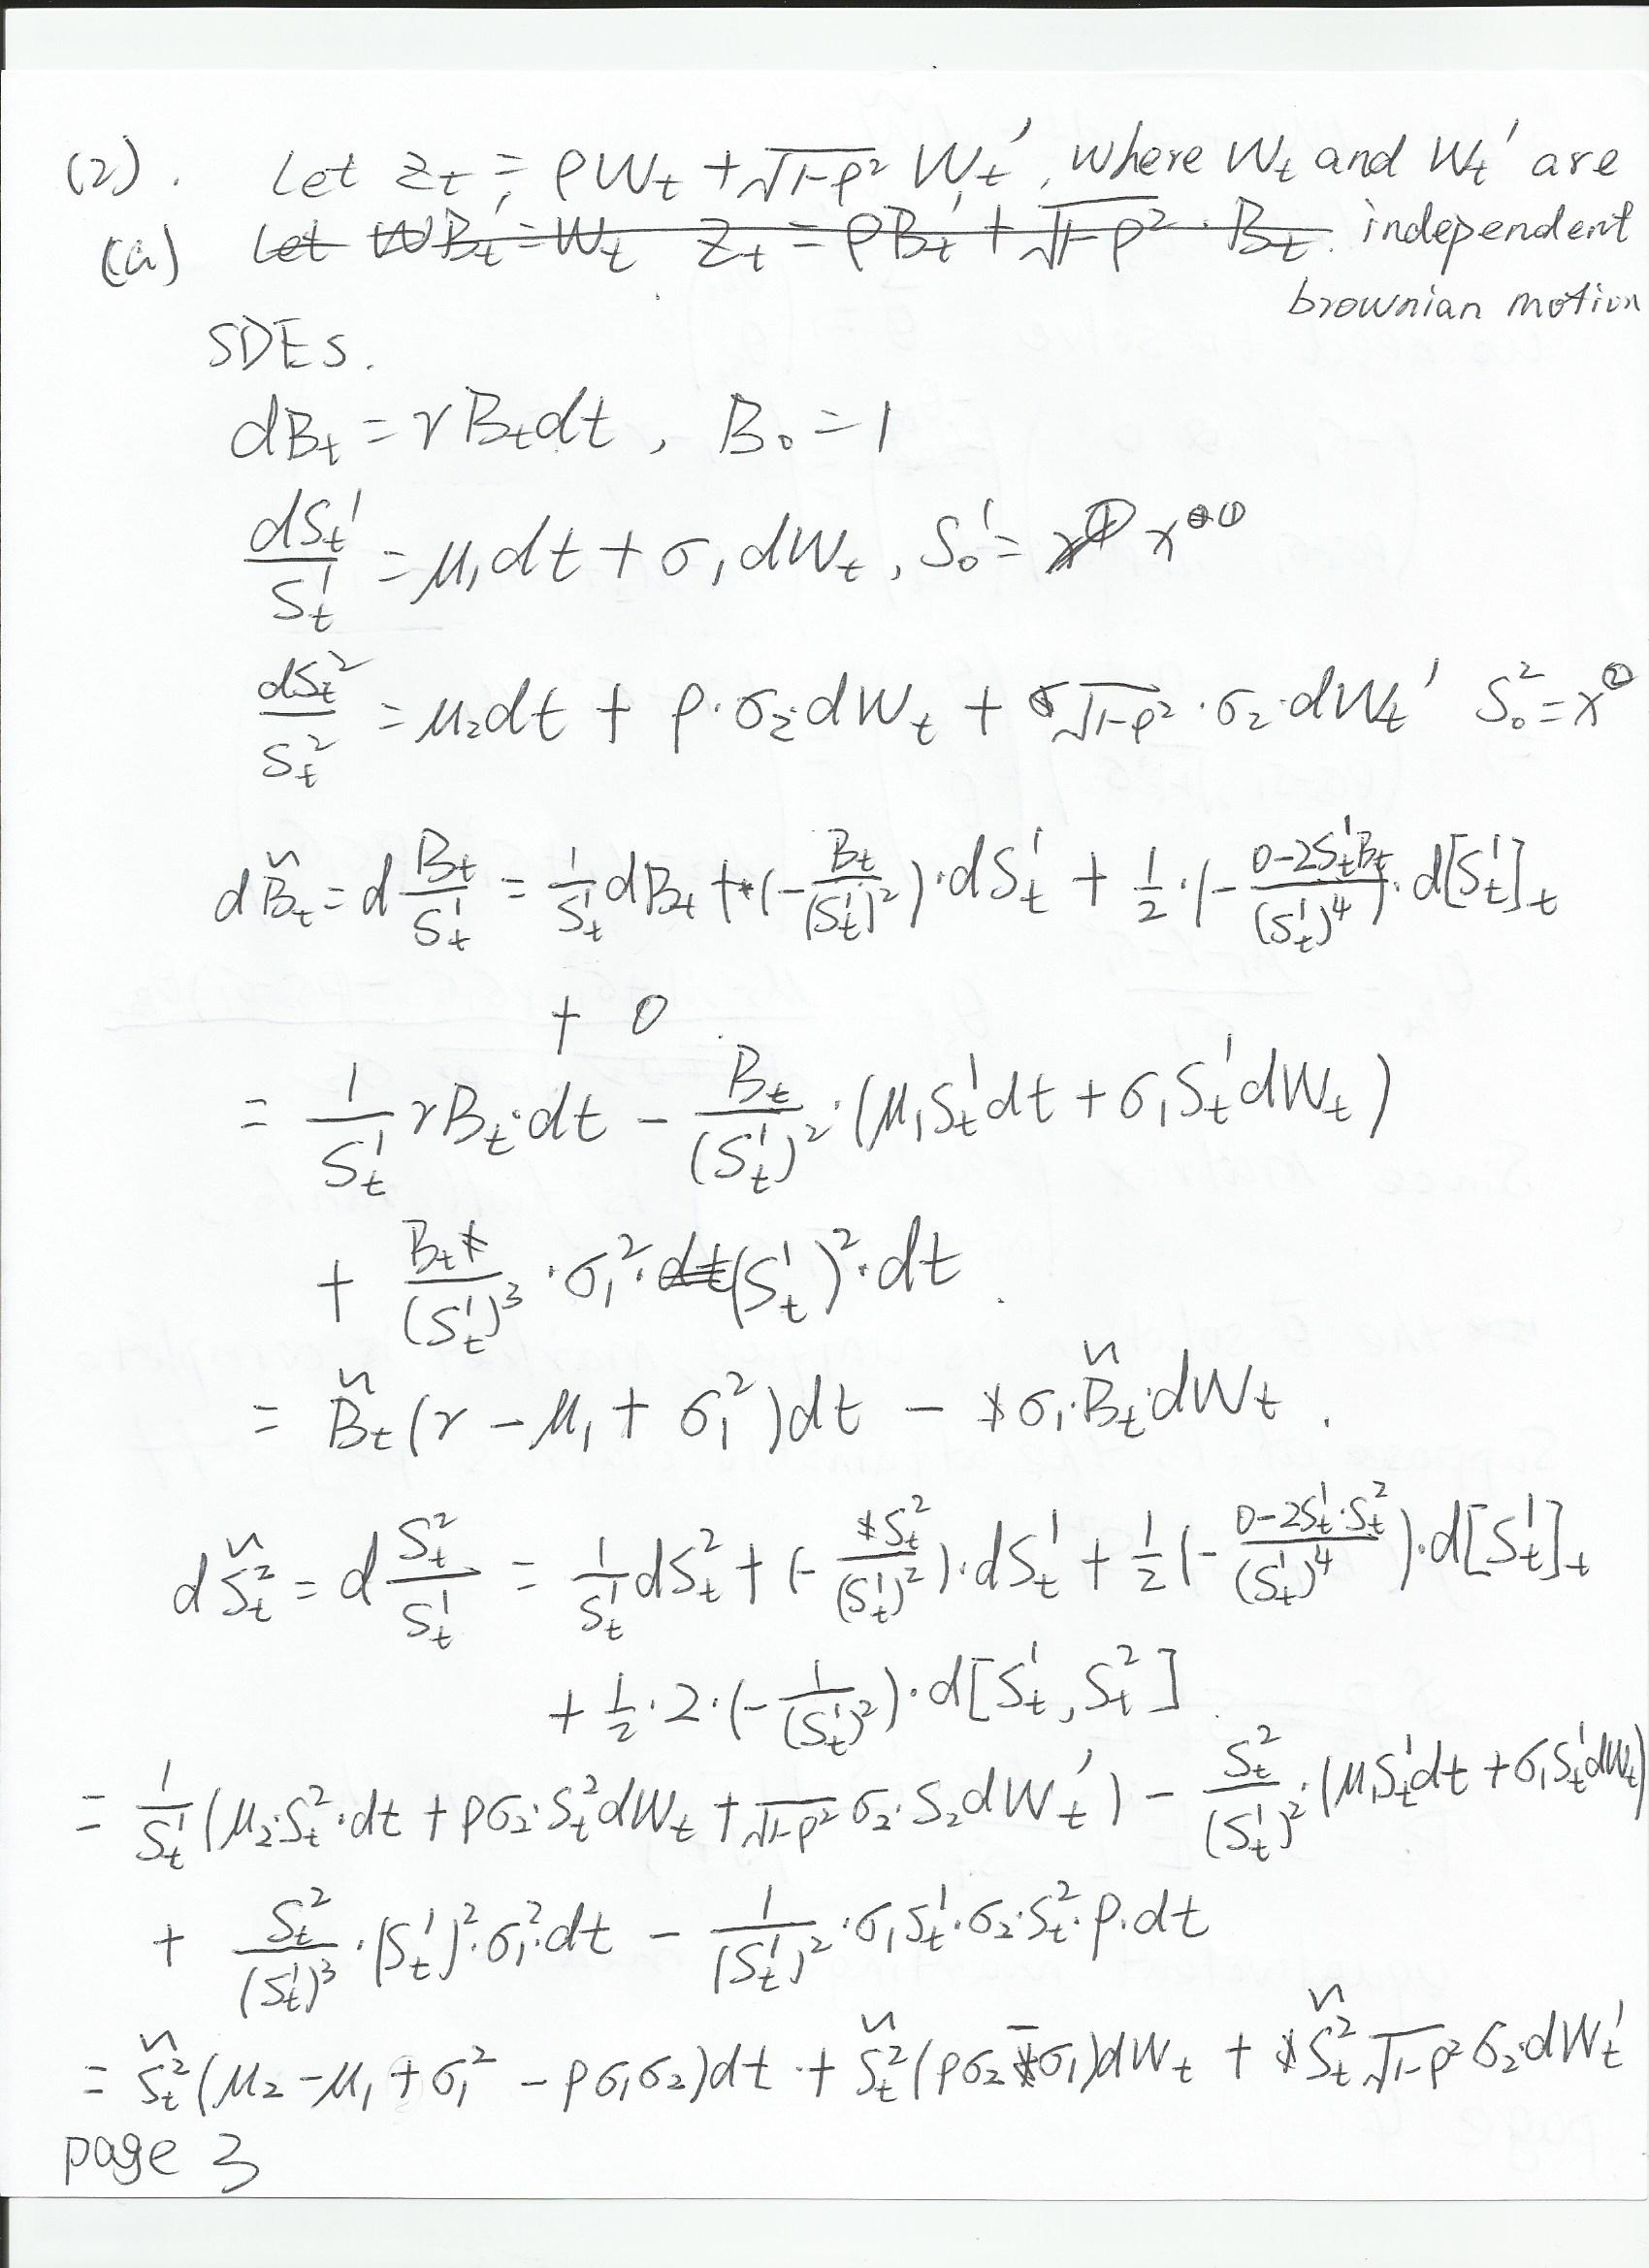 (2). Let Z_t = ρW_t + √(1-ρ²) W_t', where W_t and W_t' are
(a) Let WB_t' = W_t Z_t = ρB_t' + √(1-ρ²) · B_t. independent
brownian motion
SDEs.
dB_t = rB_t dt, B_0 = 1
dS_t^1 / S_t^1 = μ_1 dt + σ_1 dW_t, S_0^1 = x^①
dS_t^2 / S_t^2 = μ_2 dt + ρ·σ_2·dW_t + √(1-ρ²)·σ_2·dW_t' S_0^2 = x^②
dB̃_t = d B_t/S_t^1 = 1/S_t^1 dB_t + (-B_t/(S_t^1)²)·dS_t^1 + 1/2·(-(0-2S_t^1 B_t)/(S_t^1)^4)·d[S_t^1]_t
+ 0
= 1/S_t^1 rB_t·dt - B_t/(S_t^1)²·(μ_1 S_t^1 dt + σ_1 S_t^1 dW_t)
+ B_t/(S_t^1)³·σ_1²·(S_t^1)²·dt.
= B̃_t(r - μ_1 + σ_1²)dt - σ_1·B̃_t·dW_t.
dS̃_t^2 = d S_t^2/S_t^1 = 1/S_t^1 dS_t^2 + (-S_t^2/(S_t^1)²)·dS_t^1 + 1/2(-(0-2S_t^1·S_t^2)/(S_t^1)^4)·d[S_t^1]_t
+ 1/2·2·(-1/(S_t^1)²)·d[S_t^1, S_t^2]
= 1/S_t^1(μ_2·S_t^2·dt + ρσ_2·S_t^2 dW_t + √(1-ρ²) σ_2·S_2 dW_t') - S_t^2/(S_t^1)²·(μ_1 S_t^1 dt + σ_1 S_t^1 dW_t)
+ S_t^2/(S_t^1)³·(S_t^1)²·σ_1²·dt - 1/(S_t^1)²·σ_1 S_t^1·σ_2·S_t^2·ρ·dt
= S̃_t^2(μ_2 - μ_1 + σ_1² - ρσ_1σ_2)dt + S̃_t^2(ρσ_2 - σ_1)dW_t + S̃_t^2 √(1-ρ²) σ_2·dW_t'
page 3